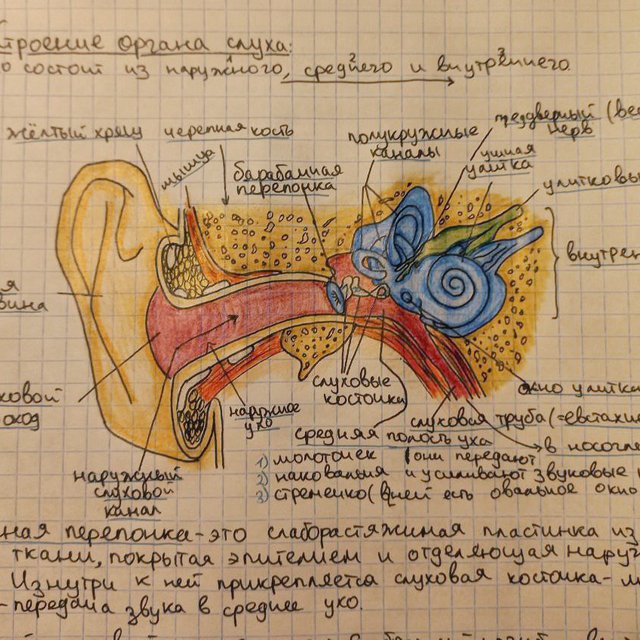 троение органа слуха:
о состоит из наружного, среднего и внутреннего
1 2 3
жёлтый хрящ
черепная кость
мышца
барабанная
перепонка
полукружные
каналы
преддверный (вес
нерв
ушная
улитка
улитковы
внутрен
я
вина
ковой
оход
наружное
ухо
слуховые
косточки
окно улитки
слуховая труба (=евстахие
средняя полость уха
→ в носогл
наружный
слуховой
канал
1) молоточек } они передают
2) наковальня и усиливают звуковые
3) стремечко (в ней есть овальное окно
ная перепонка - это слаборастяжимая пластинка из
ткани, покрытая эпителием и отделяющая нару
Изнутри к ней прикрепляется слуховая косточка - м
- передача звука в среднее ухо.